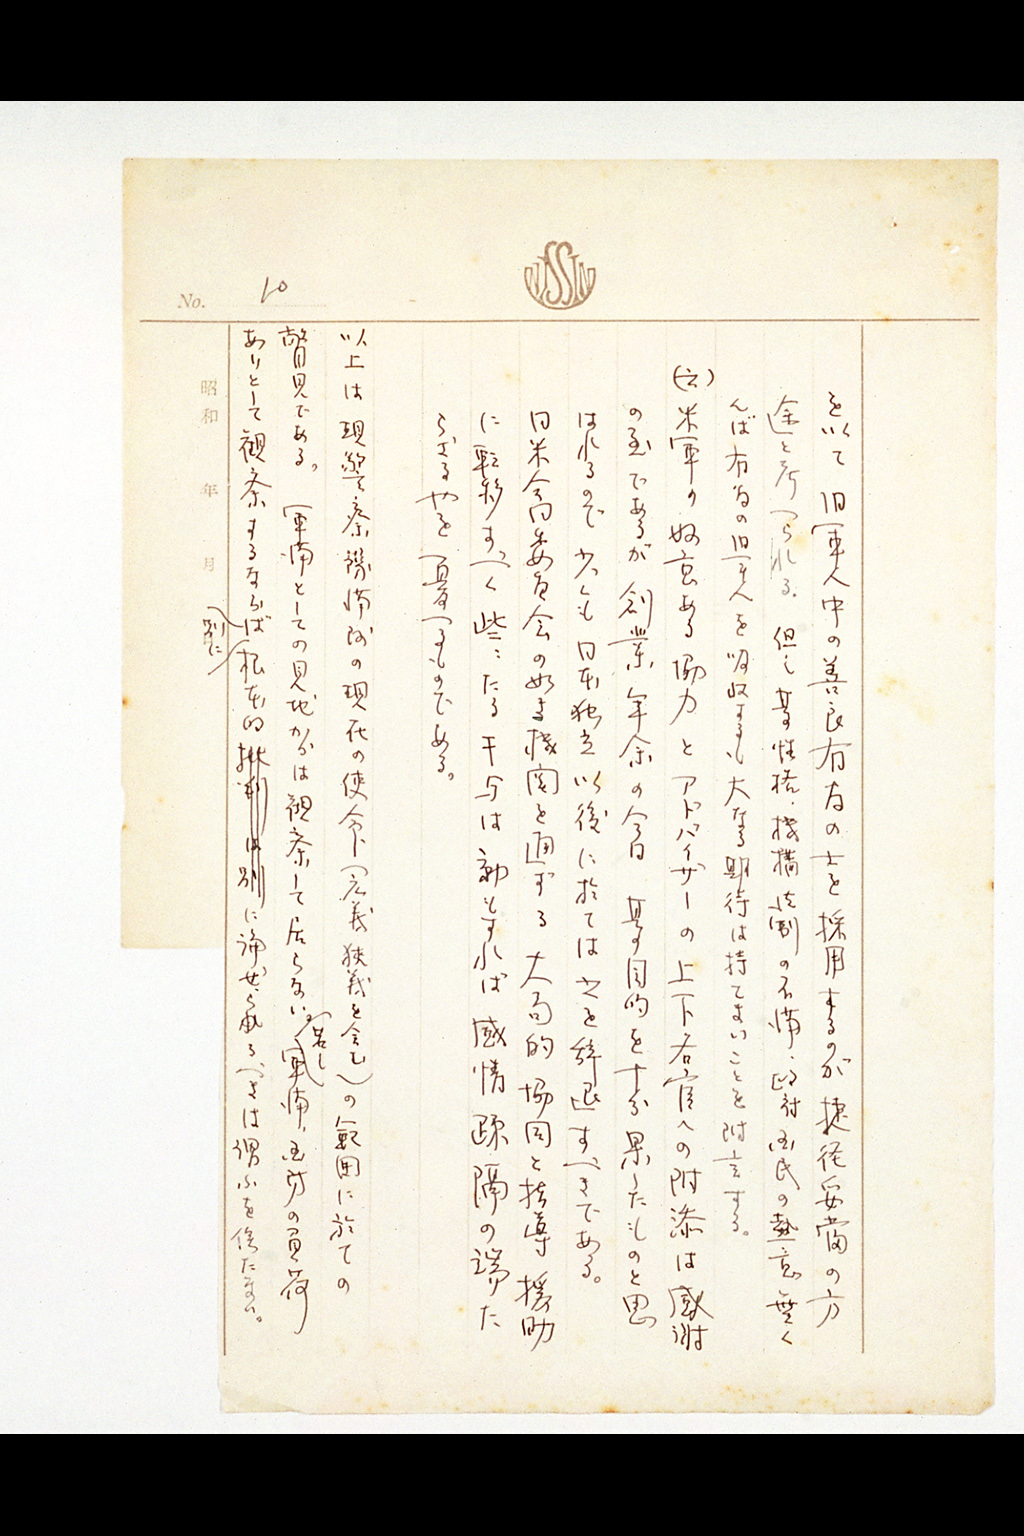 NISSIN
No. 10
昭和　年　月
を以て旧軍人中の善良有為の士を採用するのが捷径妥当の方
途と考へられる。但し其性格、機構法制の不備、政府国民の熱意無く
んば有為の旧軍人を吸収するも大なる期待は持てまいことを附言する。
(六)米軍の好意ある協力とアドバイザーの上下各官への附添は感謝
の至であるが創業年余の今日其目的を十分果したものと思
はれるので少くも日本独立以後に於ては之を辞退すべきである。
日米合同委員会の如き機関を通ずる大局的協同と指導援助
に転移すべく些々たる干与は動もすれば感情疎隔の端た
らざるやを憂へるものである。
以上は現警察予備隊の現在の使命(広義狭義を含む)の範囲に於ての
瞥見である。軍備としての見地からは観察して居らない。若し軍備、国防の負荷
ありとして観察するならば別に根本的に論ぜらるべきは謂ふを俟たない。